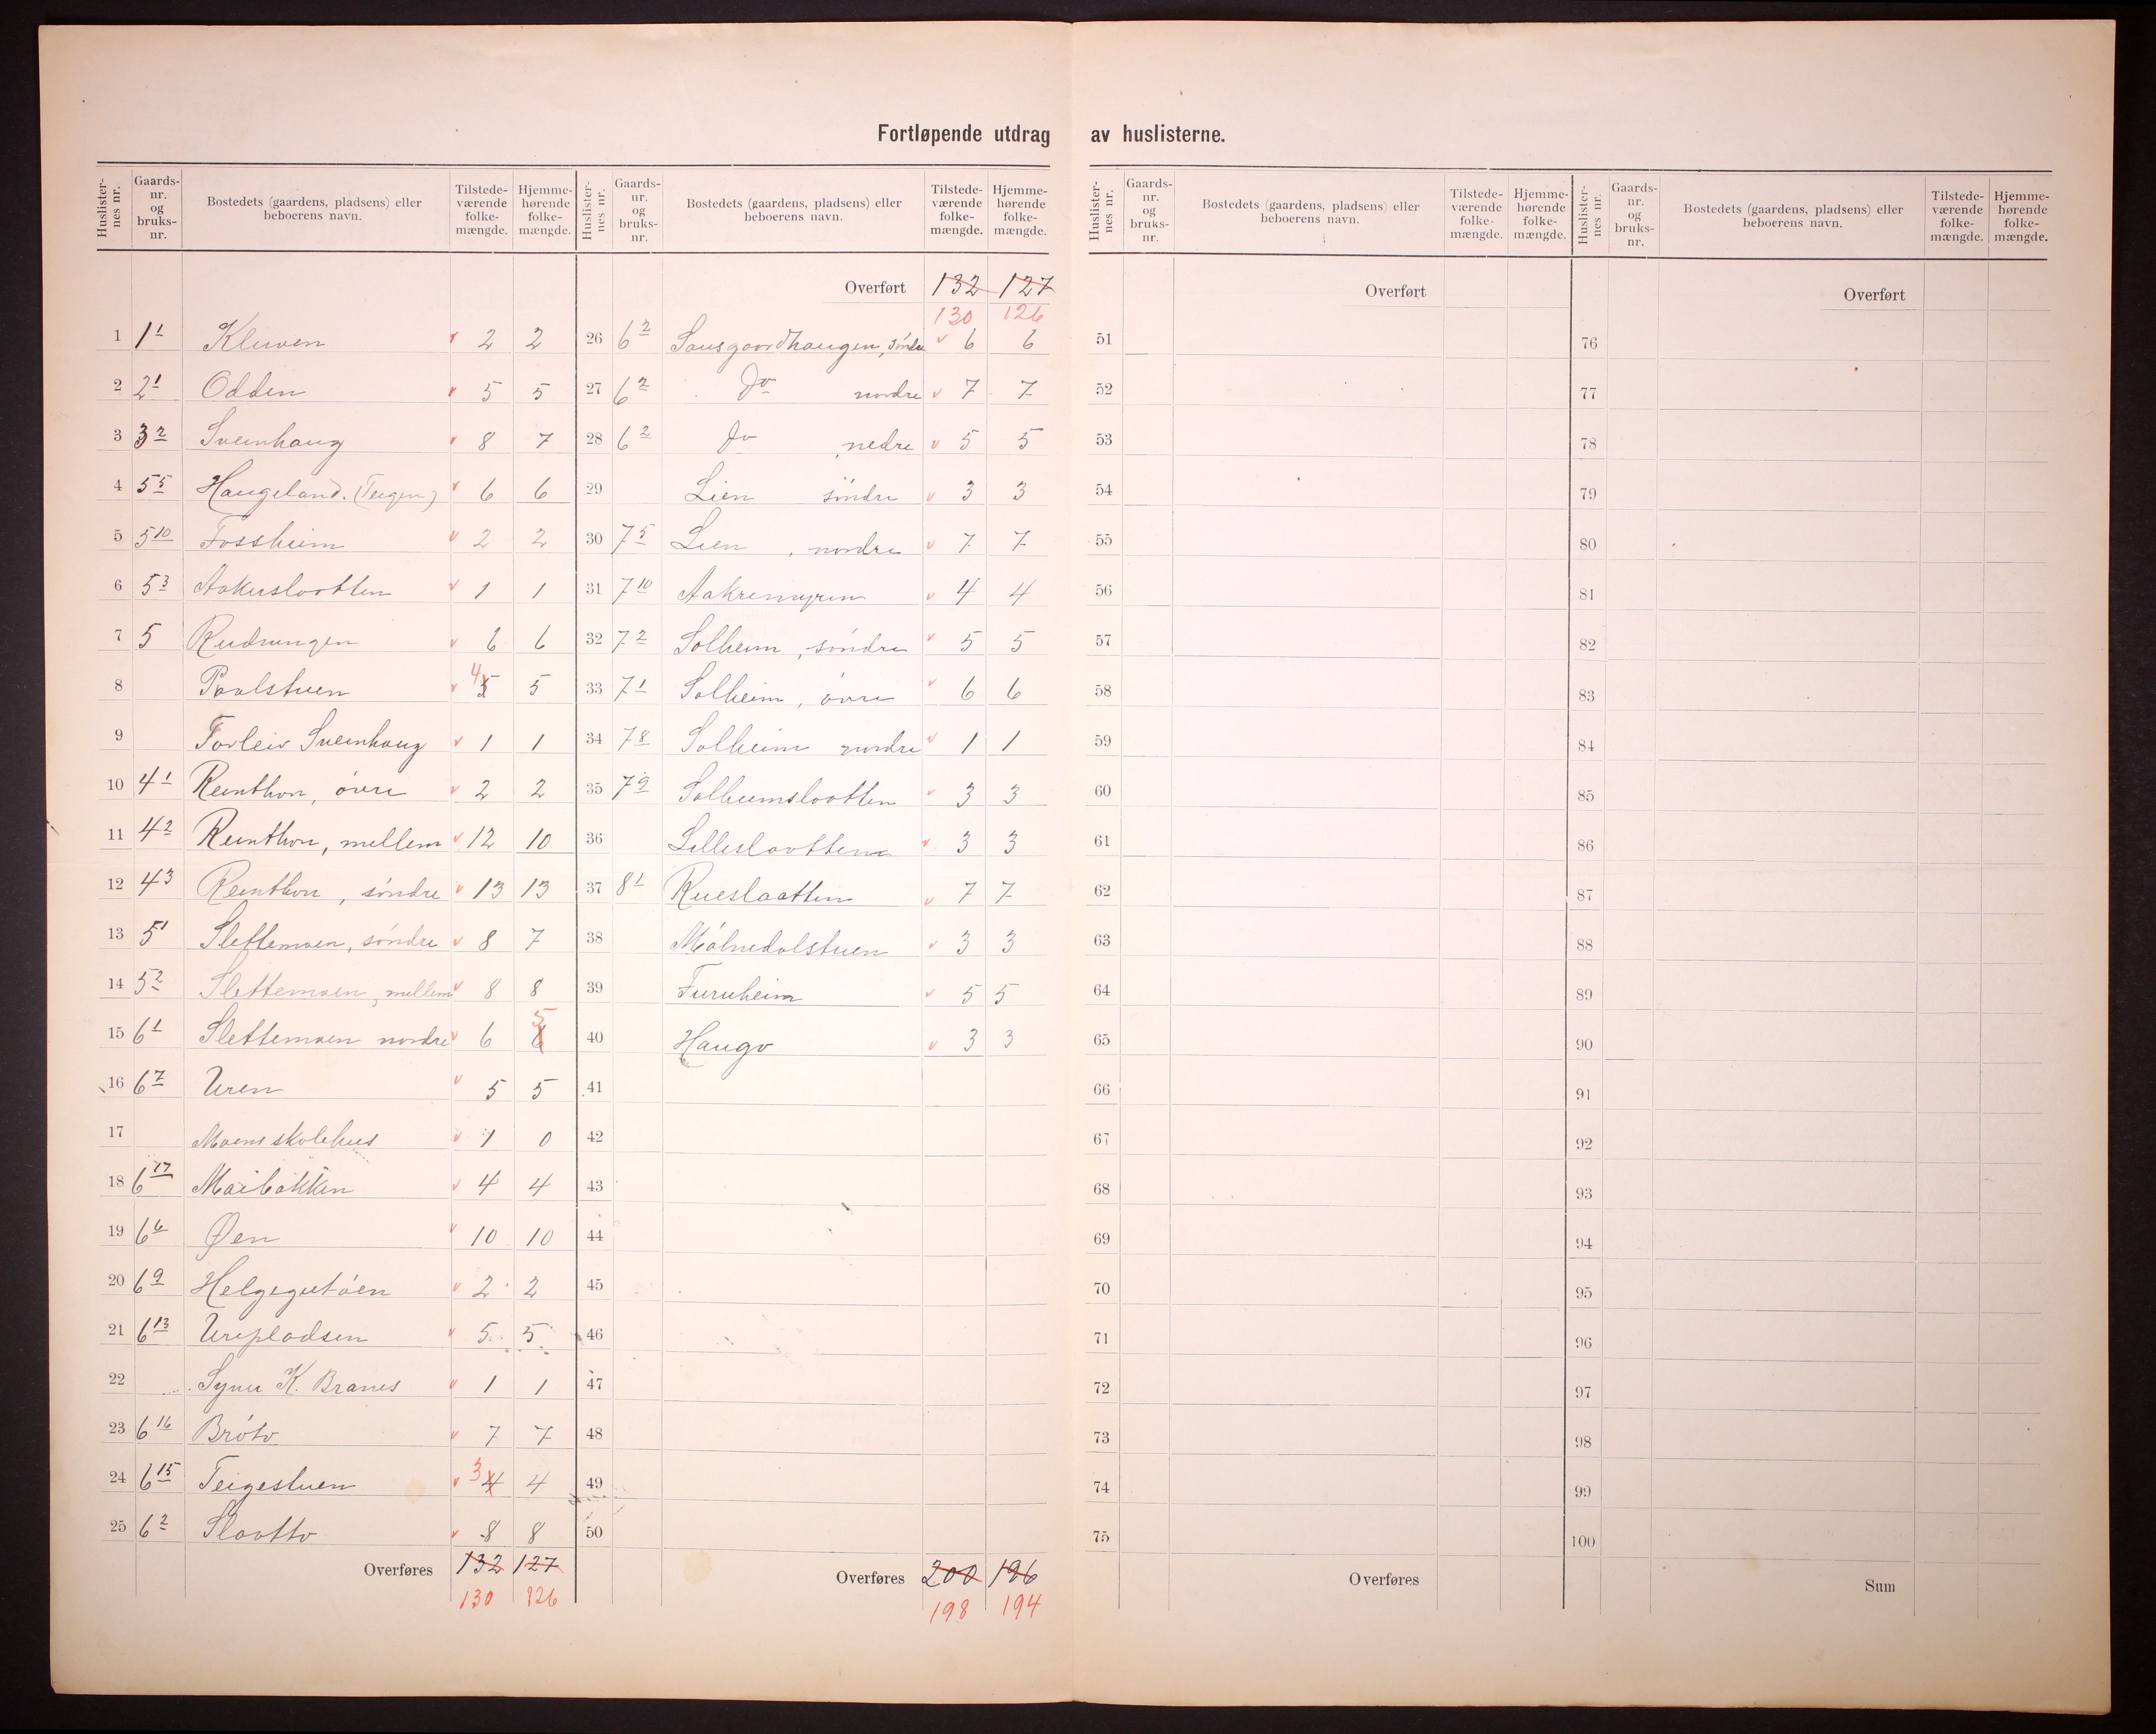 Fortløpende utdrag av huslisterne.
Huslisternes nr. Gaards-nr. og bruks-nr. Bostedets (gaardens, pladsens) eller beboerens navn. Tilstede-værende folke-mængde. Hjemme-hørende folke-mængde.
1 1 1 Kluven 2 2
2 2 1 Odden 5 5
3 3 2 Sveinhaug 8 7
4 5 5 Haugeland. (Teigen) 6 6
5 5 10 Fossheim 2 2
6 5 3 Aakerslaatten 1 1
7 5 Rudningen 6 6
8 Paalstuen 4 5 5
9 Torleiv Sveinhaug 1 1
10 4 1 Reinthon, övre 2 2
11 4 2 Reinthon, mellem 12 10
12 4 3 Reinthon, söndre 13 13
13 5 1 Slettemoen, söndre 8 7
14 5 2 Slettemoen, mellem 8 8
15 6 1 Slettemoen nordre 6 5 6
16 6 7 Uren 5 5
17 Moens skolehus 1 0
18 6 17 Maibakken 4 4
19 6 6 Øen 10 10
20 6 9 Helgegutöen 2 2
21 6 13 Urepladsen 5 5
22 K. Branes 1 1
23 6 16 Bröto 7 7
24 6 15 Teigestuen 3 4 4
25 6 2 Slaatto 8 8
Overføres 132 127
130 126
Huslisternes nr. Gaards-nr. og bruks-nr. Bostedets (gaardens, pladsens) eller beboerens navn. Tilstede-værende folke-mængde. Hjemme-hørende folke-mængde.
Overført 132 127
130 126
26 6 2 söndre 6 6
27 6 2 Do nordre 7 7
28 6 2 Do nedre 5 5
29 Lien söndre 3 3
30 7 5 Lien, nordre 7 7
31 7 10 Aakremyren 4 4
32 7 2 Solheim, söndre 5 5
33 7 1 Solheim, övre 6 6
34 7 8 Solheim nordre 1 1
35 7 9 Solheimslaatten 3 3
36 Lilleslaatten 3 3
37 8 1 Rueslaatten 7 7
38 Mölnedalstuen 3 3
39 Furuheim 5 5
40 Haugo 3 3
41
42
43
44
45
46
47
48
49
50
Overføres 200 196
198 194
Huslisternes nr. Gaards-nr. og bruks-nr. Bostedets (gaardens, pladsens) eller beboerens navn. Tilstede-værende folke-mængde. Hjemme-hørende folke-mængde.
Overført
51
52
53
54
55
56
57
58
59
60
61
62
63
64
65
66
67
68
69
70
71
72
73
74
75
Overføres
Huslisternes nr. Gaards-nr. og bruks-nr. Bostedets (gaardens, pladsens) eller beboerens navn. Tilstede-værende folke-mængde. Hjemme-hørende folke-mængde.
Overført
76
77
78
79
80
81
82
83
84
85
86
87
88
89
90
91
92
93
94
95
96
97
98
99
100
Sum